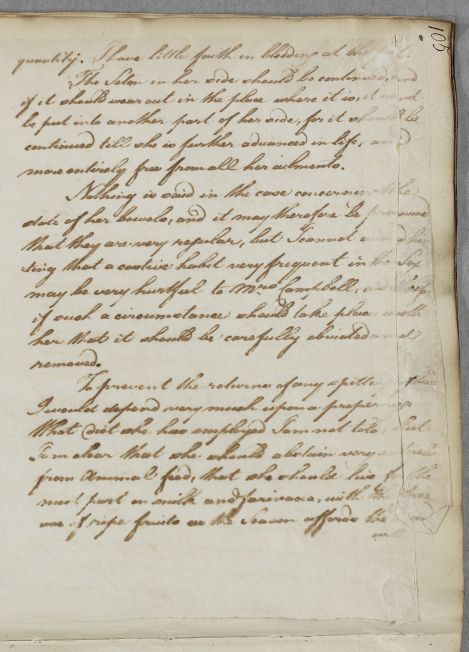 105
quantity. I have little faith in bleeding at the
The Seton in her side should be continued, and
if it should wear out in the place where it is, it must
be put into another part of her side, for it should be
continued till she is further advanced in life, and
more entirely free from all her ailments.
Nothing is said in the case concerning the
state of her bowels, and it may therefore be presumed
that they are very regular, but I cannot avoid hin
ting that a costive habit very frequent in the Sex
may be very hurtful to Mrs Campbell, and
if such a circumstance should take place with
her that it should be carefully obviated and
removed.
To prevent the returns of any spitting of blood
I would depend very much upon a proper
What diet she has employed I am not told, but
I'm clear that she should abstain very
from Animal food, that she should live for the
most part on milk and farinacea, with the free
use of ripe fruits as the Season affords them